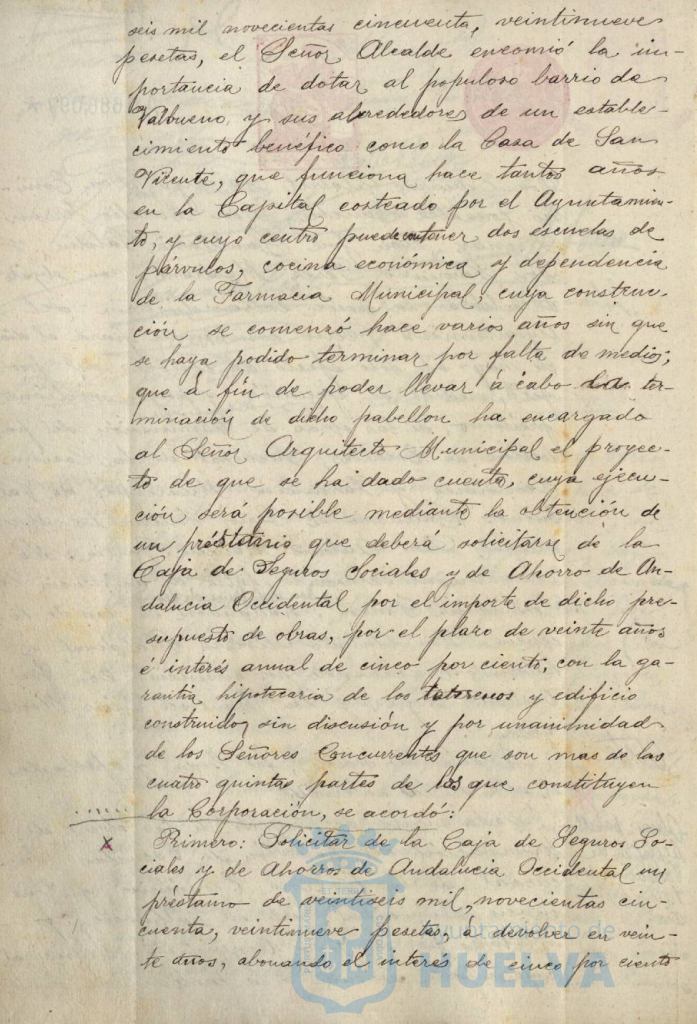 seis mil novecientas cincuenta, veintinueve
pesetas, el Señor Alcalde encomió la im-
portancia de dotar al populoso barrio de
Valbueno, y sus alrededores de un estable-
cimiento benéfico como la Casa de San
Vicente, que funciona hace tantos años
en la Capital costeado por el Ayuntamien-
to, y cuyo centro puede contener dos escuelas de
párvulos, cocina económica y dependencia
de la Farmacia Municipal, cuya construc-
ción se comenzó hace varios años sin que
se haya podido terminar por falta de medios;
que á fin de poder llevar á cabo la ter-
minación de dicho pabellon ha encargado
al Señor Arquitecto Municipal el proyec-
to de que se ha dado cuenta, cuya ejecu-
ción será posible mediante la obtención de
un préstamo que deberá solicitarse de la
Caja de Seguros Sociales y de Ahorro de An-
dalucia Occidental por el importe de dicho pre-
supuesto de obras, por el plazo de veinte años
é interés anual de cinco por ciento, con la ga-
rantia hipotecaria de los terrenos y edificio
construido, sin discusión y por unanimidad
de los Señores Concurrentes que son mas de las
cuatro quintas partes de los que constituyen
la Corporación, se acordó:
Primero: Solicitar de la Caja de Seguros So-
ciales y de Ahorros de Andalucia Occidental un
préstamo de veintiseis mil, novecientas cin-
cuenta, veintinueve pesetas, á devolver en vein-
te años, abonando el interés de cinco por ciento
Ayuntamiento de
HUELVA